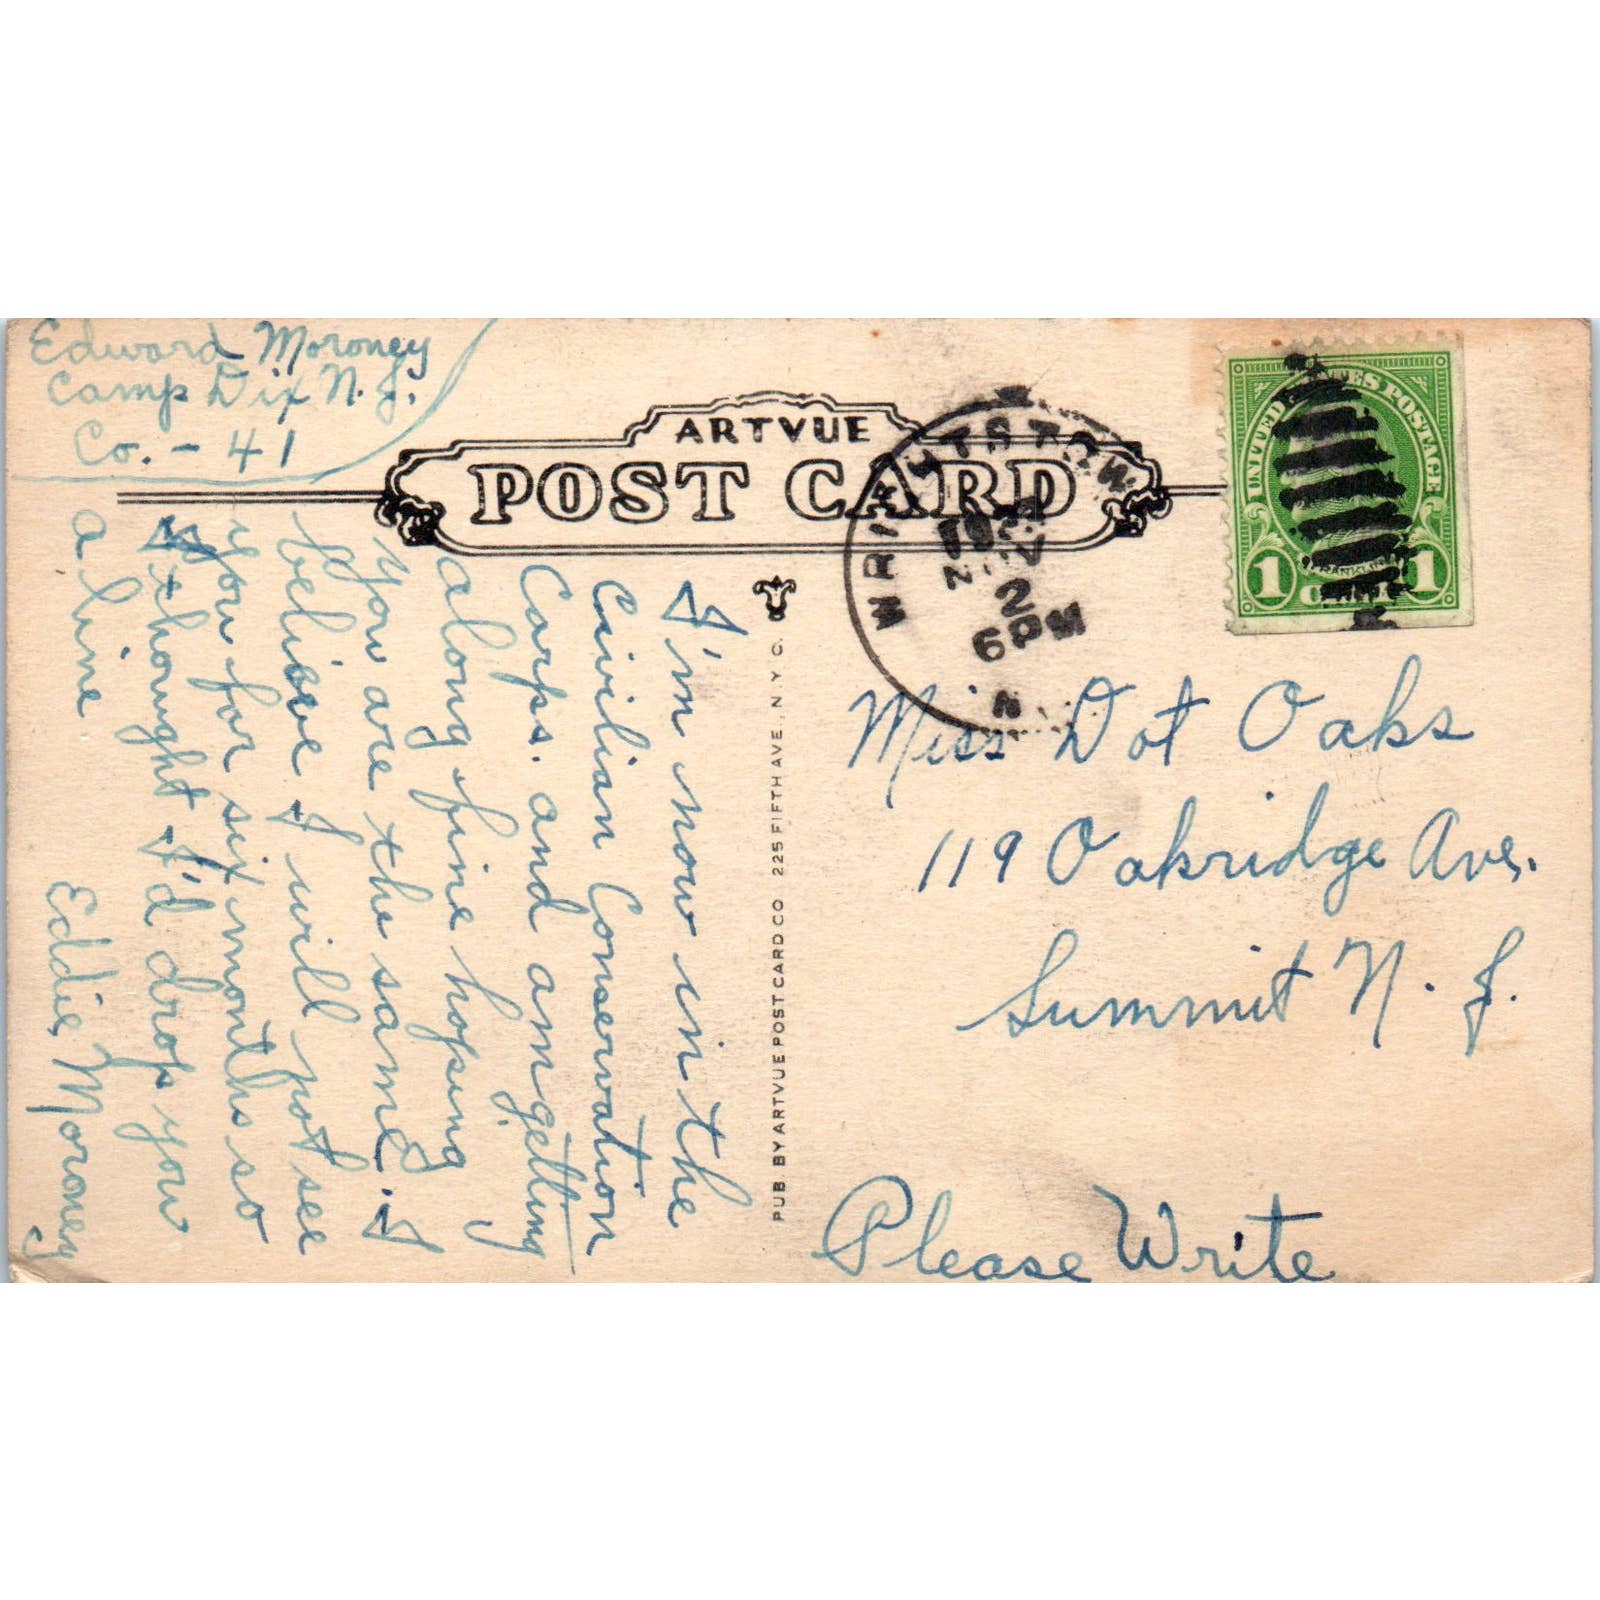 Edward Moroney
Camp Dix N.J.
Co. - 41
ARTVUE
POST CARD
WRIGHTSTOWN
2
6 PM
N
UNITED STATES POSTAGE
FRANKLIN
1 1
I'm now in the
Civilian Conservation
Corps. and am getting
along fine hoping
you are the same. I
believe I will not see
you for six months so
I thought I'd drop you
a line
Eddie Moroney
PUB. BY ARTVUE POSTCARD CO 225 FIFTH AVE., N.Y.C.
Miss Dot Oaks
119 Oakridge Ave.
Summit N.J.
Please Write